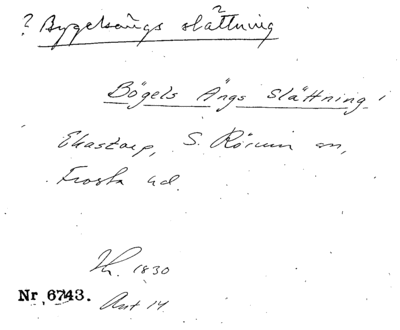 ? Bygelsängs slåttning
Bögels Ängs Slåttning!
Ekastorp, S. Rörum sn,
Frosta hd.
1830
Nr 6743. Ant 14